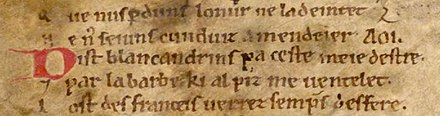 ue nus ꝑduns lonur ne la deintet
e nꝰ seiuns cunduit a mendeier AOI.
Dist blancandrins pa ceste meie destre
⁊ par la barbe ki al piz me uentelet
ost des franceis uerrez sempres desfere.